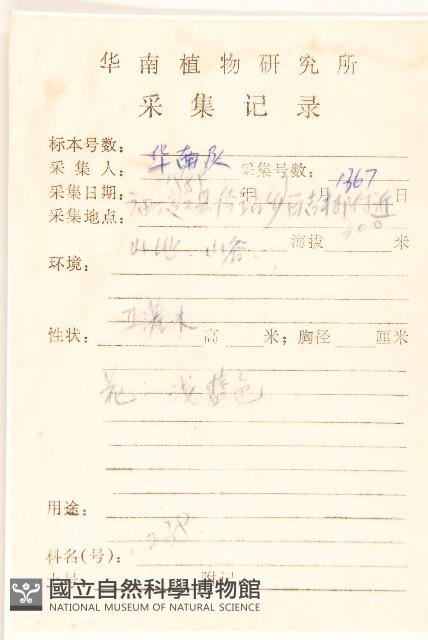 华南植物研究所
采集记录
标本号数：
采集人：华南队 采集号数：1367
采集日期： 年 月 日
采集地点：
山地．山谷． 海拔 700 米
环境：
性状： 灌木 高 米；胸径 厘米
花 浅蓝色
用途：
238
科名(号)：
附记
國立自然科學博物館
NATIONAL MUSEUM OF NATURAL SCIENCE